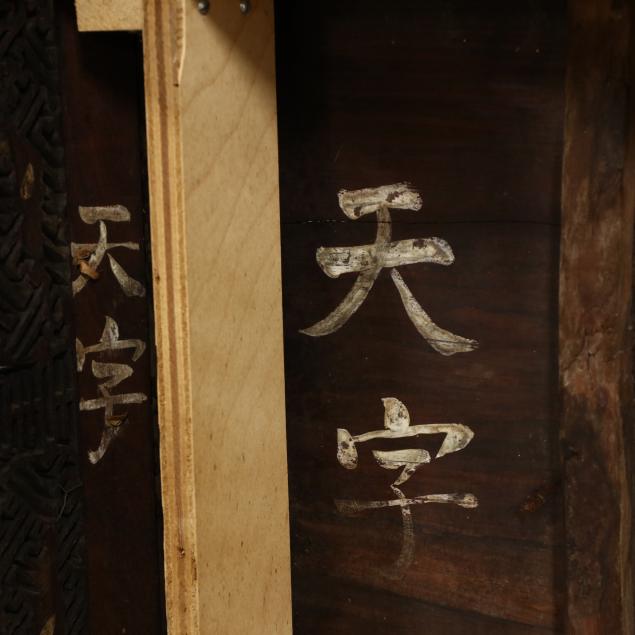 天字
天字